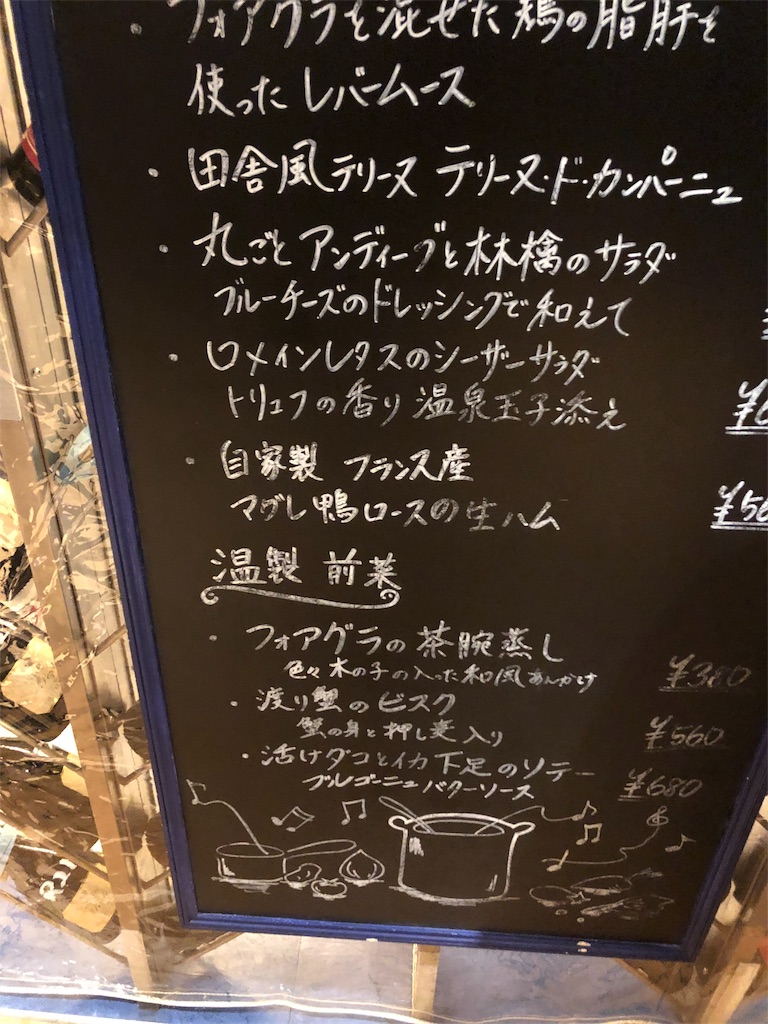 ・フォアグラを混ぜた鶏の脂肝を
使ったレバームース
・田舎風テリーヌ テリーヌ・ド・カンパーニュ
・丸ごとアンディーブと林檎のサラダ
ブルーチーズのドレッシングで和えて
・ロメインレタスのシーザーサラダ
トリュフの香り 温泉玉子添え
・自家製 フランス産
マグレ鴨ロースの生ハム
温製 前菜
・フォアグラの茶碗蒸し
色々木の子の入った和風あんかけ ¥380
・渡り蟹のビスク
蟹の身と押し麦入り ¥560
・活けダコとイカ下足のソテー
ブルゴーニュバターソース ¥680